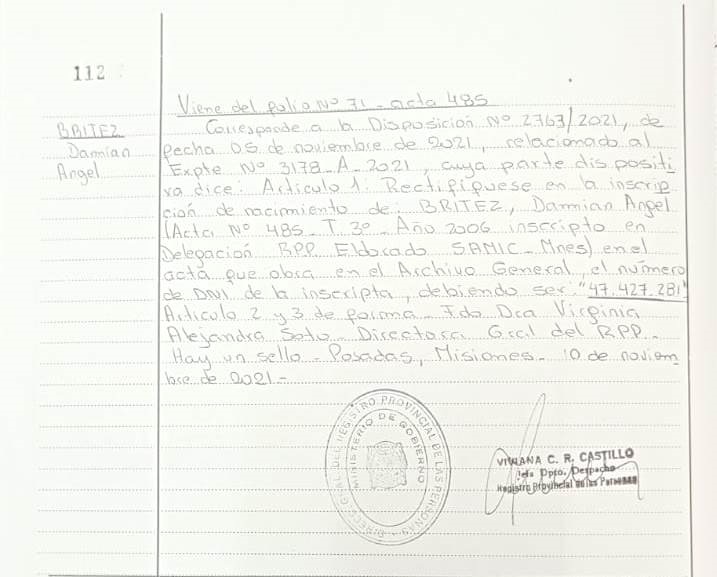 112
Viene del folio Nº 71 - acta 485
BRITEZ
Damian
Angel
Corresponde a la Disposición Nº 2763/2021, de
fecha 05 de noviembre de 2021, relacionado al
Expte Nº 3178-A-2021, cuya parte dispositi
va dice: Articulo 1: Rectifiquese en la inscrip
ción de nacimiento de: BRITEZ, Damian Angel
(Acta Nº 485 - T. 3º - Año 2006 inscripto en
Delegación RPP Eldorado SAMIC - Mnes) en el
acta que obra en el Archivo General, el número
de DNI de la inscripta, debiendo ser: "47.427.281"
Articulo 2 y 3 de forma - Fdo Dra Virginia
Alejandra Soto - Directora Gral del RPP -
Hay un sello - Posadas, Misiones - 10 de noviem
bre de 2021 -
DIRECC. GRAL. DEL REGISTRO PROVINCIAL DE LAS PERSONAS
MINISTERIO DE GOBIERNO
VIVIANA C. R. CASTILLO
Jefa Dpto. Despacho
Registro Provincial de las Personas